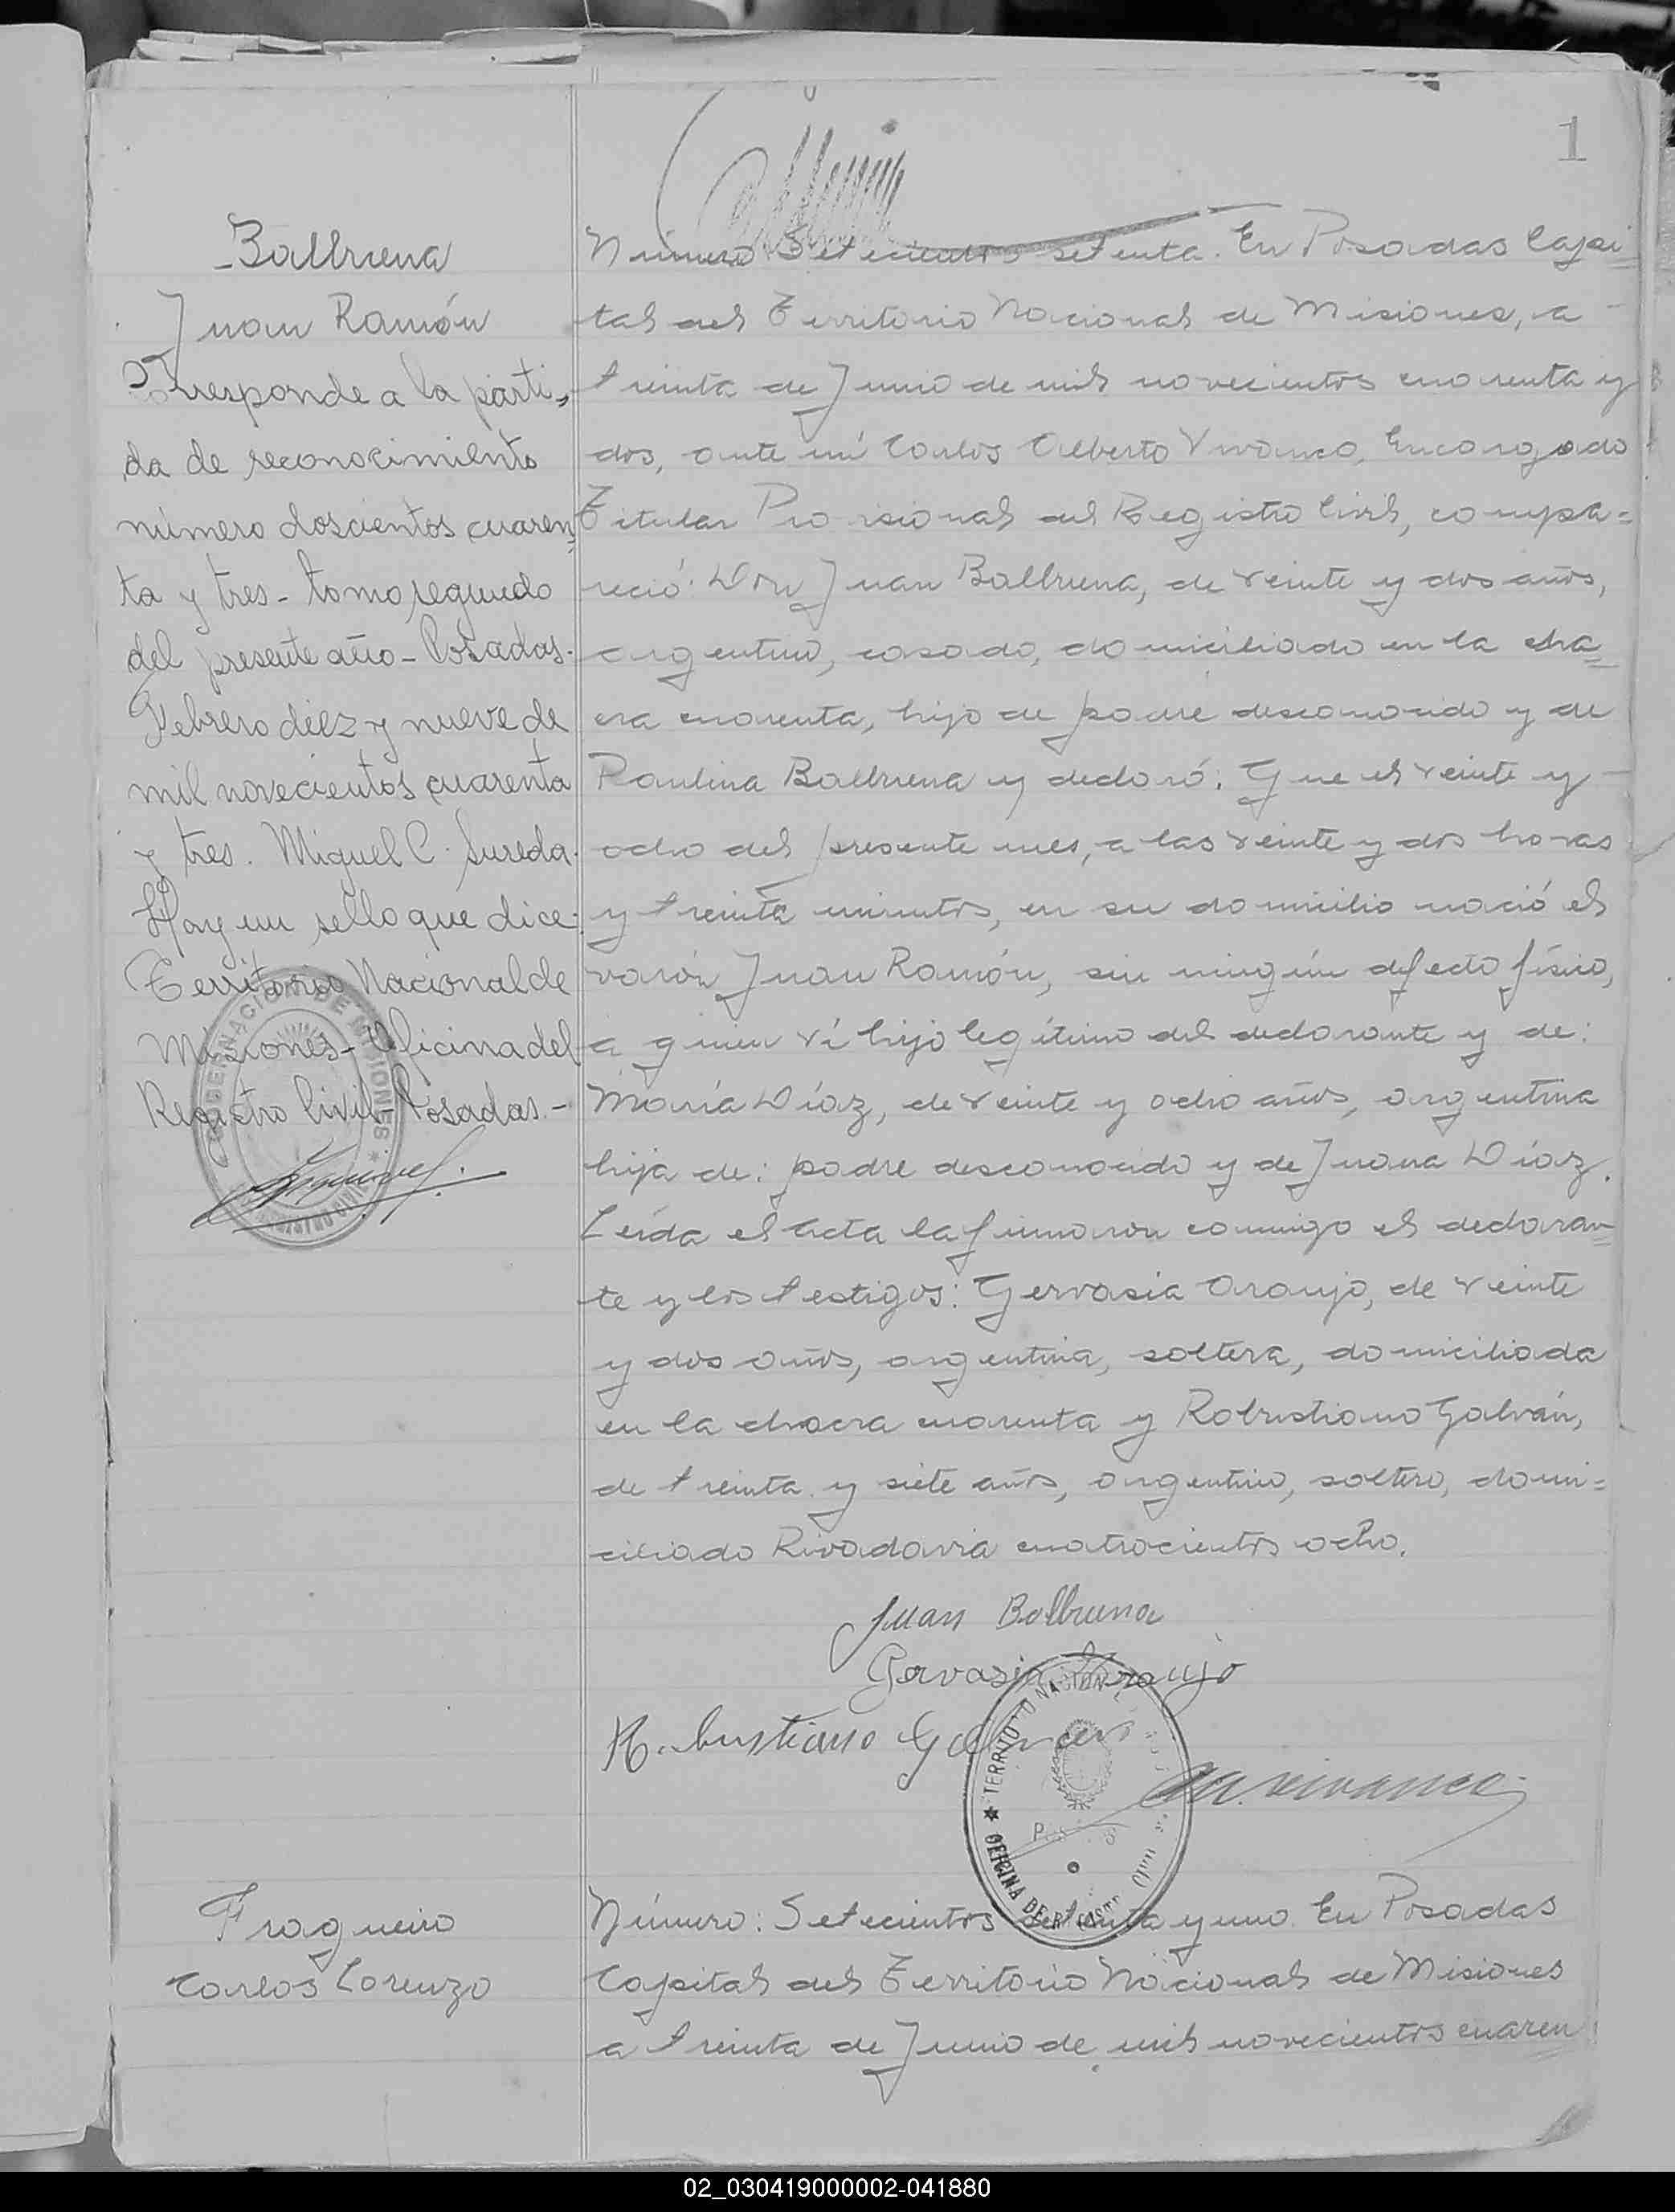 1
Balbuena
Juan Ramón
Corresponde a la parti-
da de reconocimiento
número doscientos cuaren-
ta y tres - tomo segundo
del presente año - Posadas.
Febrero diez y nueve de
mil novecientos cuarenta
y tres. Miguel C. Sureda.
Hay un sello que dice:
Territorio Nacional de
Misiones - Oficina del
Registro Civil - Posadas. -
GOBERNACION DE MISIONES
REGISTRO CIVIL
Número Setecientos setenta. En Posadas Capi=
tal del Territorio Nacional de Misiones, a
treinta de Junio de mil novecientos cuarenta y
dos, ante mí Carlos Alberto Vivanco, Encargado
Titular Provisional del Registro Civil, compa=
reció: Don Juan Balbuena, de veinte y dos años,
argentino, casado, domiciliado en la cha=
cra cuarenta, hijo de padre desconocido y de
Paulina Balbuena y declaró: Que el veinte y
ocho del presente mes, a las veinte y dos horas
y treinta minutos, en su domicilio nació el
varón Juan Ramón, sin ningún defecto físico,
a quien vi hijo legítimo del declarante y de:
María Díaz, de veinte y ocho años, argentina
hija de: padre desconocido y de Juana Díaz.
Leída el acta la firmaron conmigo el declaran=
te y los testigos: Gervasia Araujo, de veinte
y dos años, argentina, soltera, domiciliada
en la chacra cuarenta y Robustiano Galván,
de treinta y siete años, argentino, soltero, domi=
ciliado Rivadavia cuatrocientos ocho.
Juan Balbuena
Gervasia Araujo
Robustiano Galván
TERRITORIO NACIONAL
OFICINA DEL REGISTRO CIVIL
POSADAS
Fragueiro
Carlos Lorenzo
Número: Setecientos setenta y uno. En Posadas
Capital del Territorio Nacional de Misiones
a treinta de Junio de mil novecientos cuaren
02_030419000002-041880